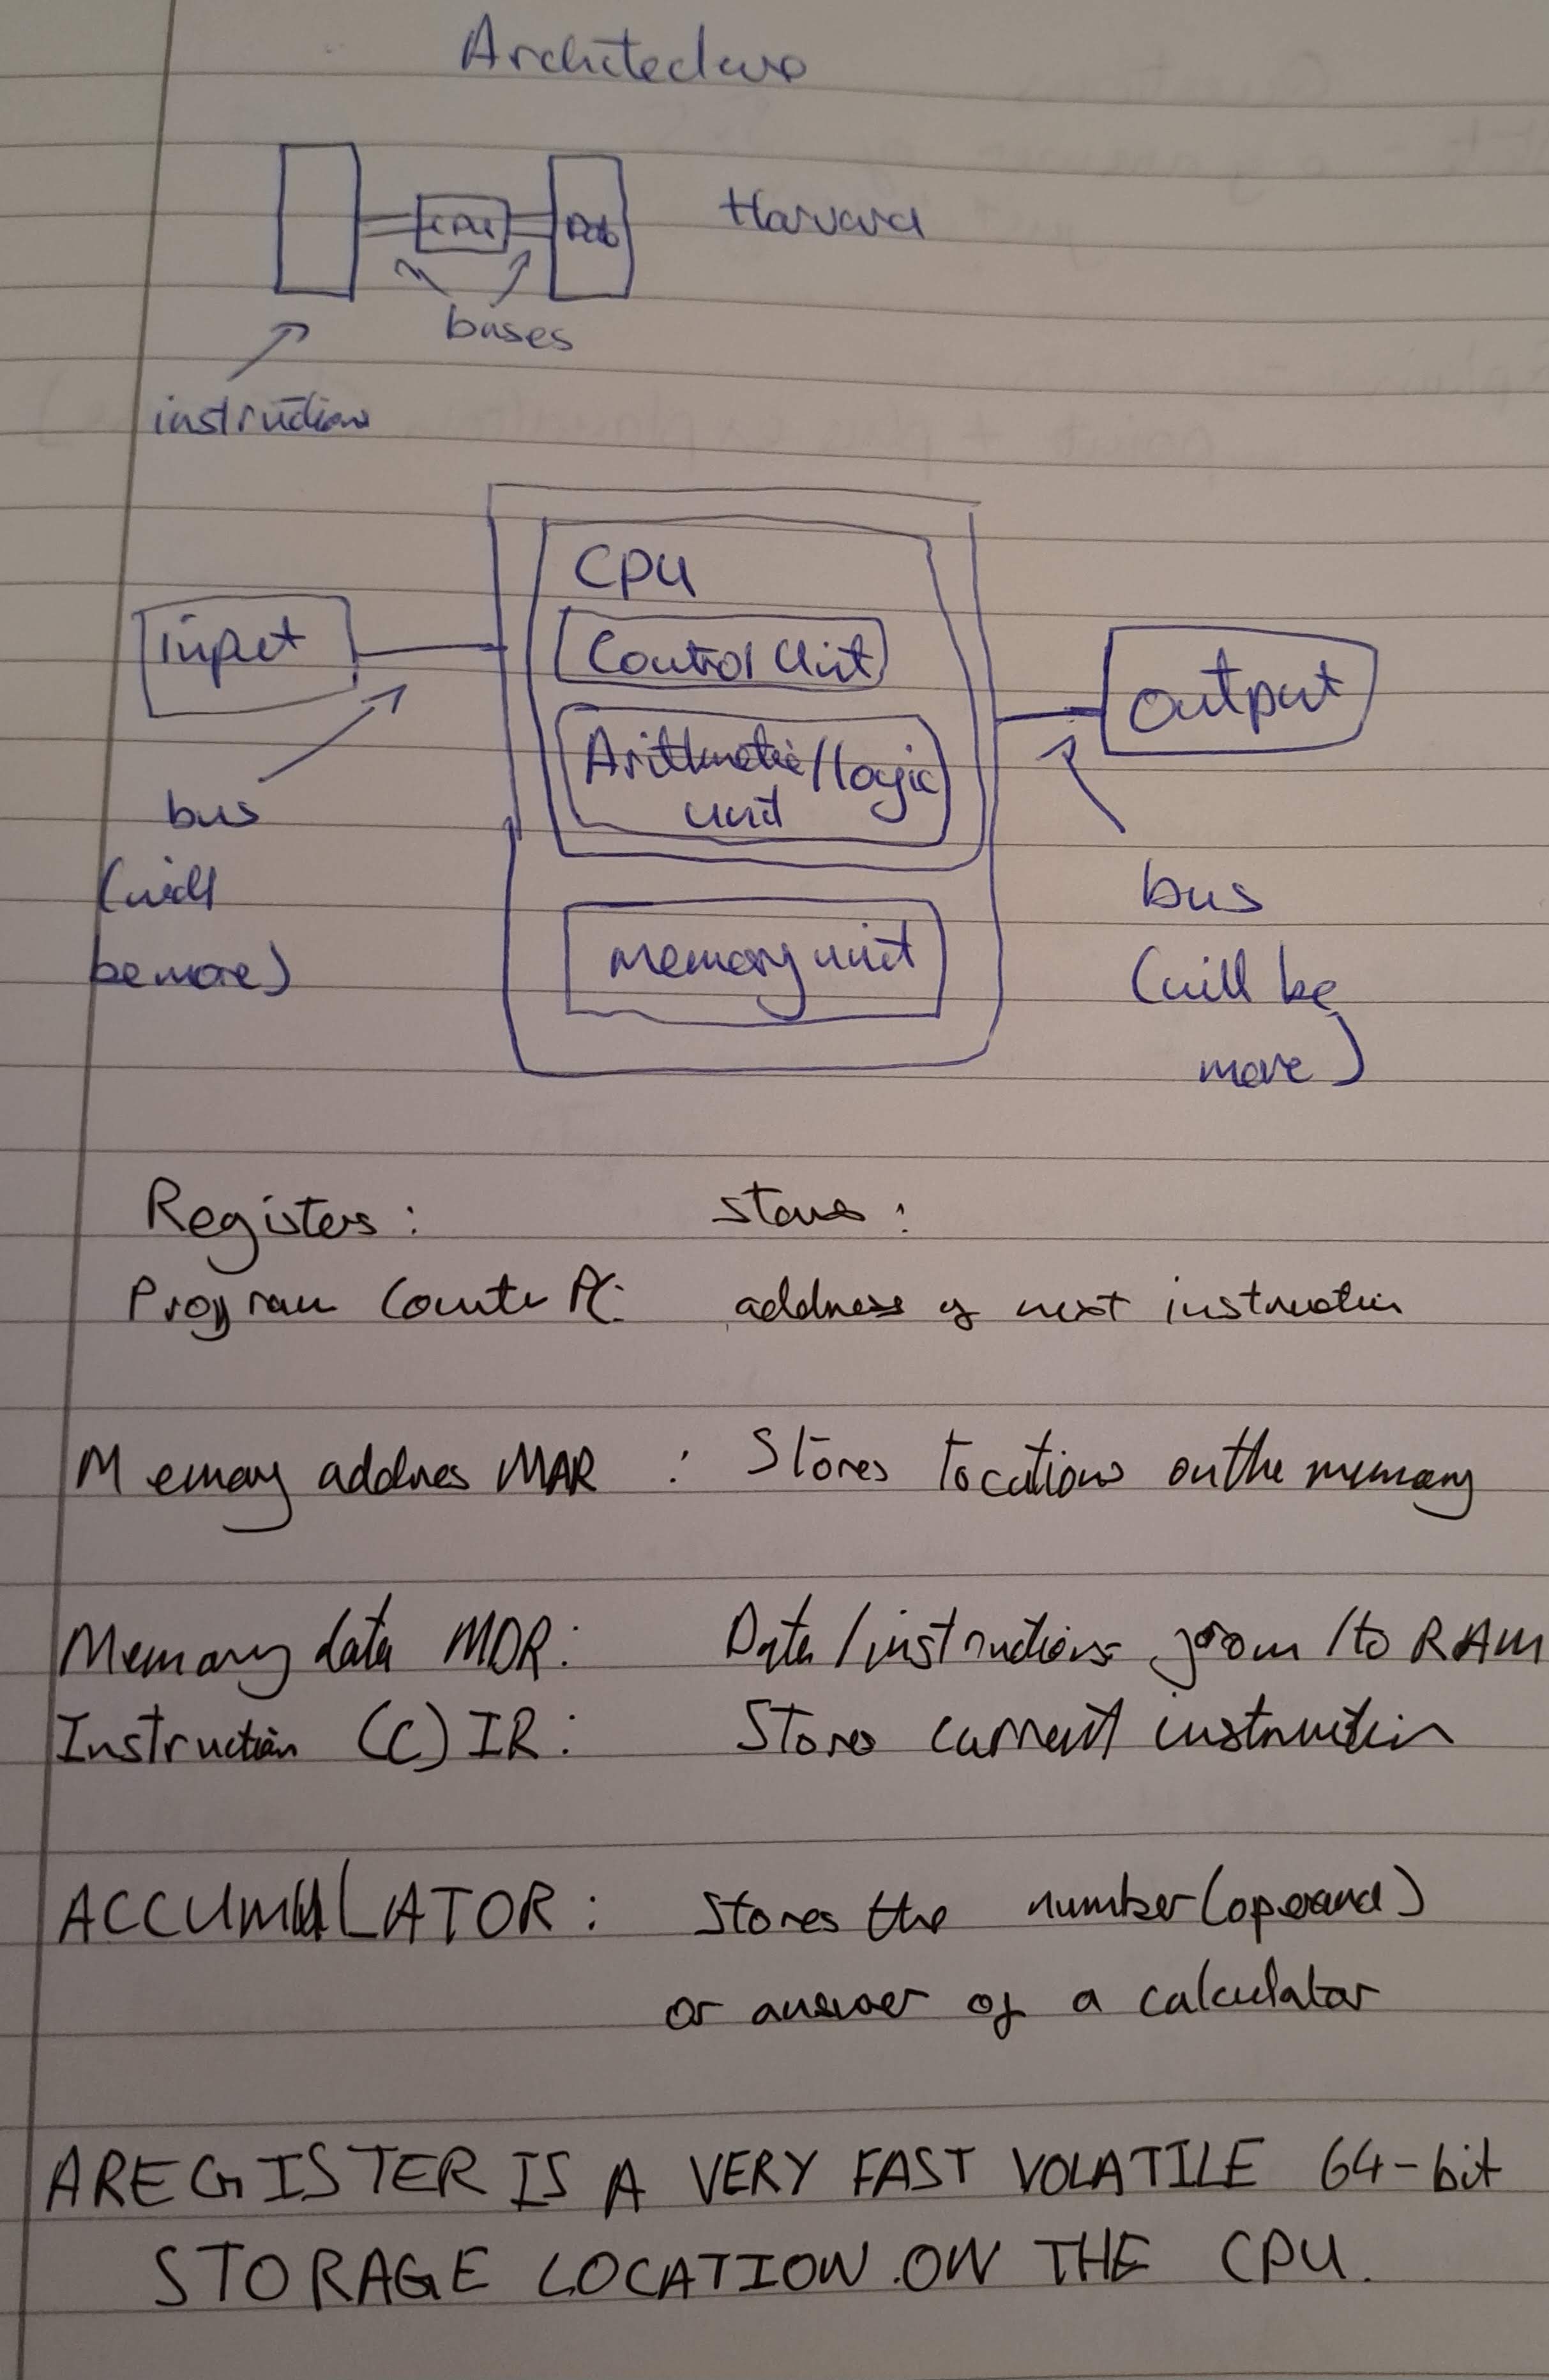 Architecture
CPU Data Harvard
buses
instruction
CPU
input Control Unit
output
Arithmetic/logic
unit
bus
(will bus
be more) memory unit (will be
more)
Registers: stores:
Program Counter PC: address of next instruction
Memory address MAR : Stores locations on the memory
Memory data MDR: Data/instructions from/to RAM
Instruction (C)IR: Stores current instruction
ACCUMULATOR: Stores the number (operand)
or answer of a calculator
A REGISTER IS A VERY FAST VOLATILE 64-bit
STORAGE LOCATION ON THE CPU.